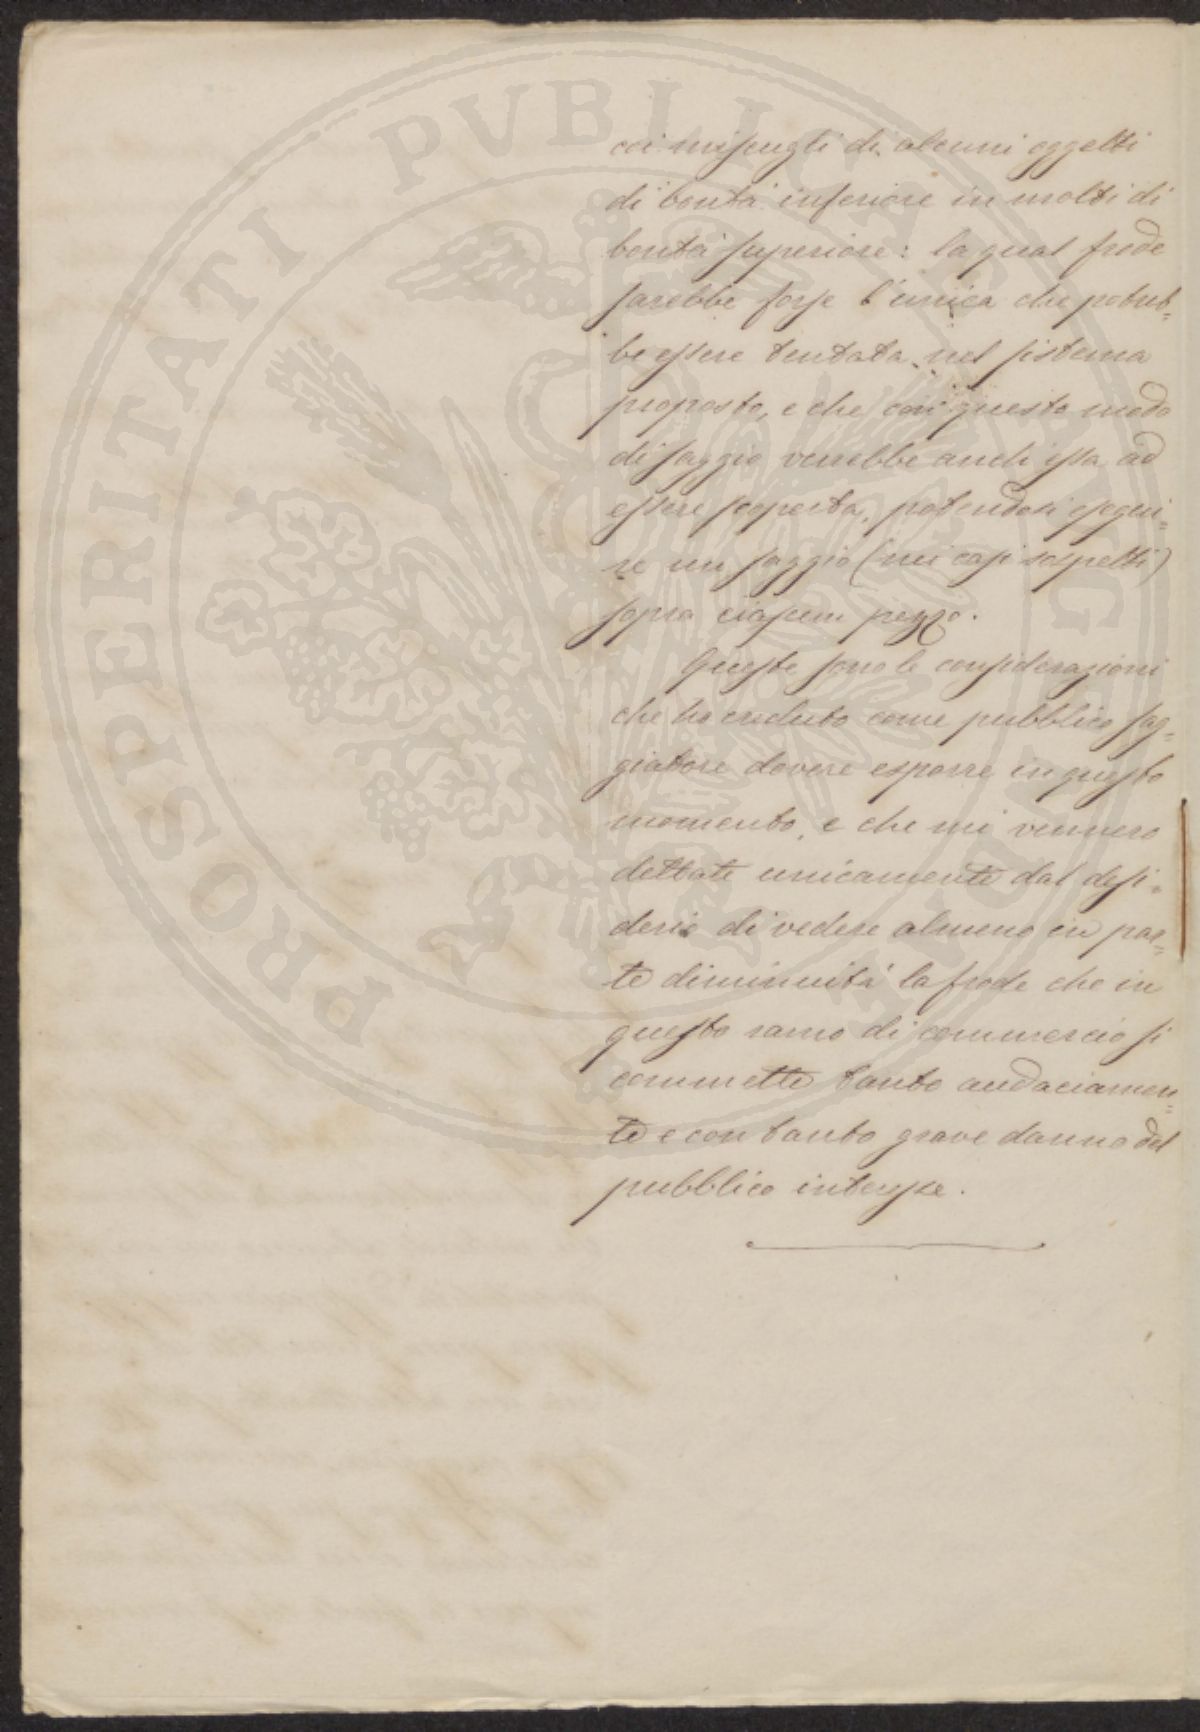 coi miscugli di alcuni oggetti
di bontà inferiore in molti di
bontà superiore: la qual frode
sarebbe forse l'unica che potreb=
be essere tentata nel sistema
proposto, e che con questo modo
di saggio verrebbe anch essa ad
essere scoperta, potendosi esegui=
re un saggio (nei casi sospetti)
sopra ciascun pezzo.
Queste sono le considerazioni
che ho creduto come pubblico sag=
giatore dovere esporre in questo
momento, e che mi vennero
dettate unicamente dal desi=
derio di vedere almeno in par=
te diminuita la frode che in
questo ramo di commercio si
commette tanto audaciamen=
te e con tanto grave danno del
pubblico interesse.
PROSPERITATI PUBLICAE